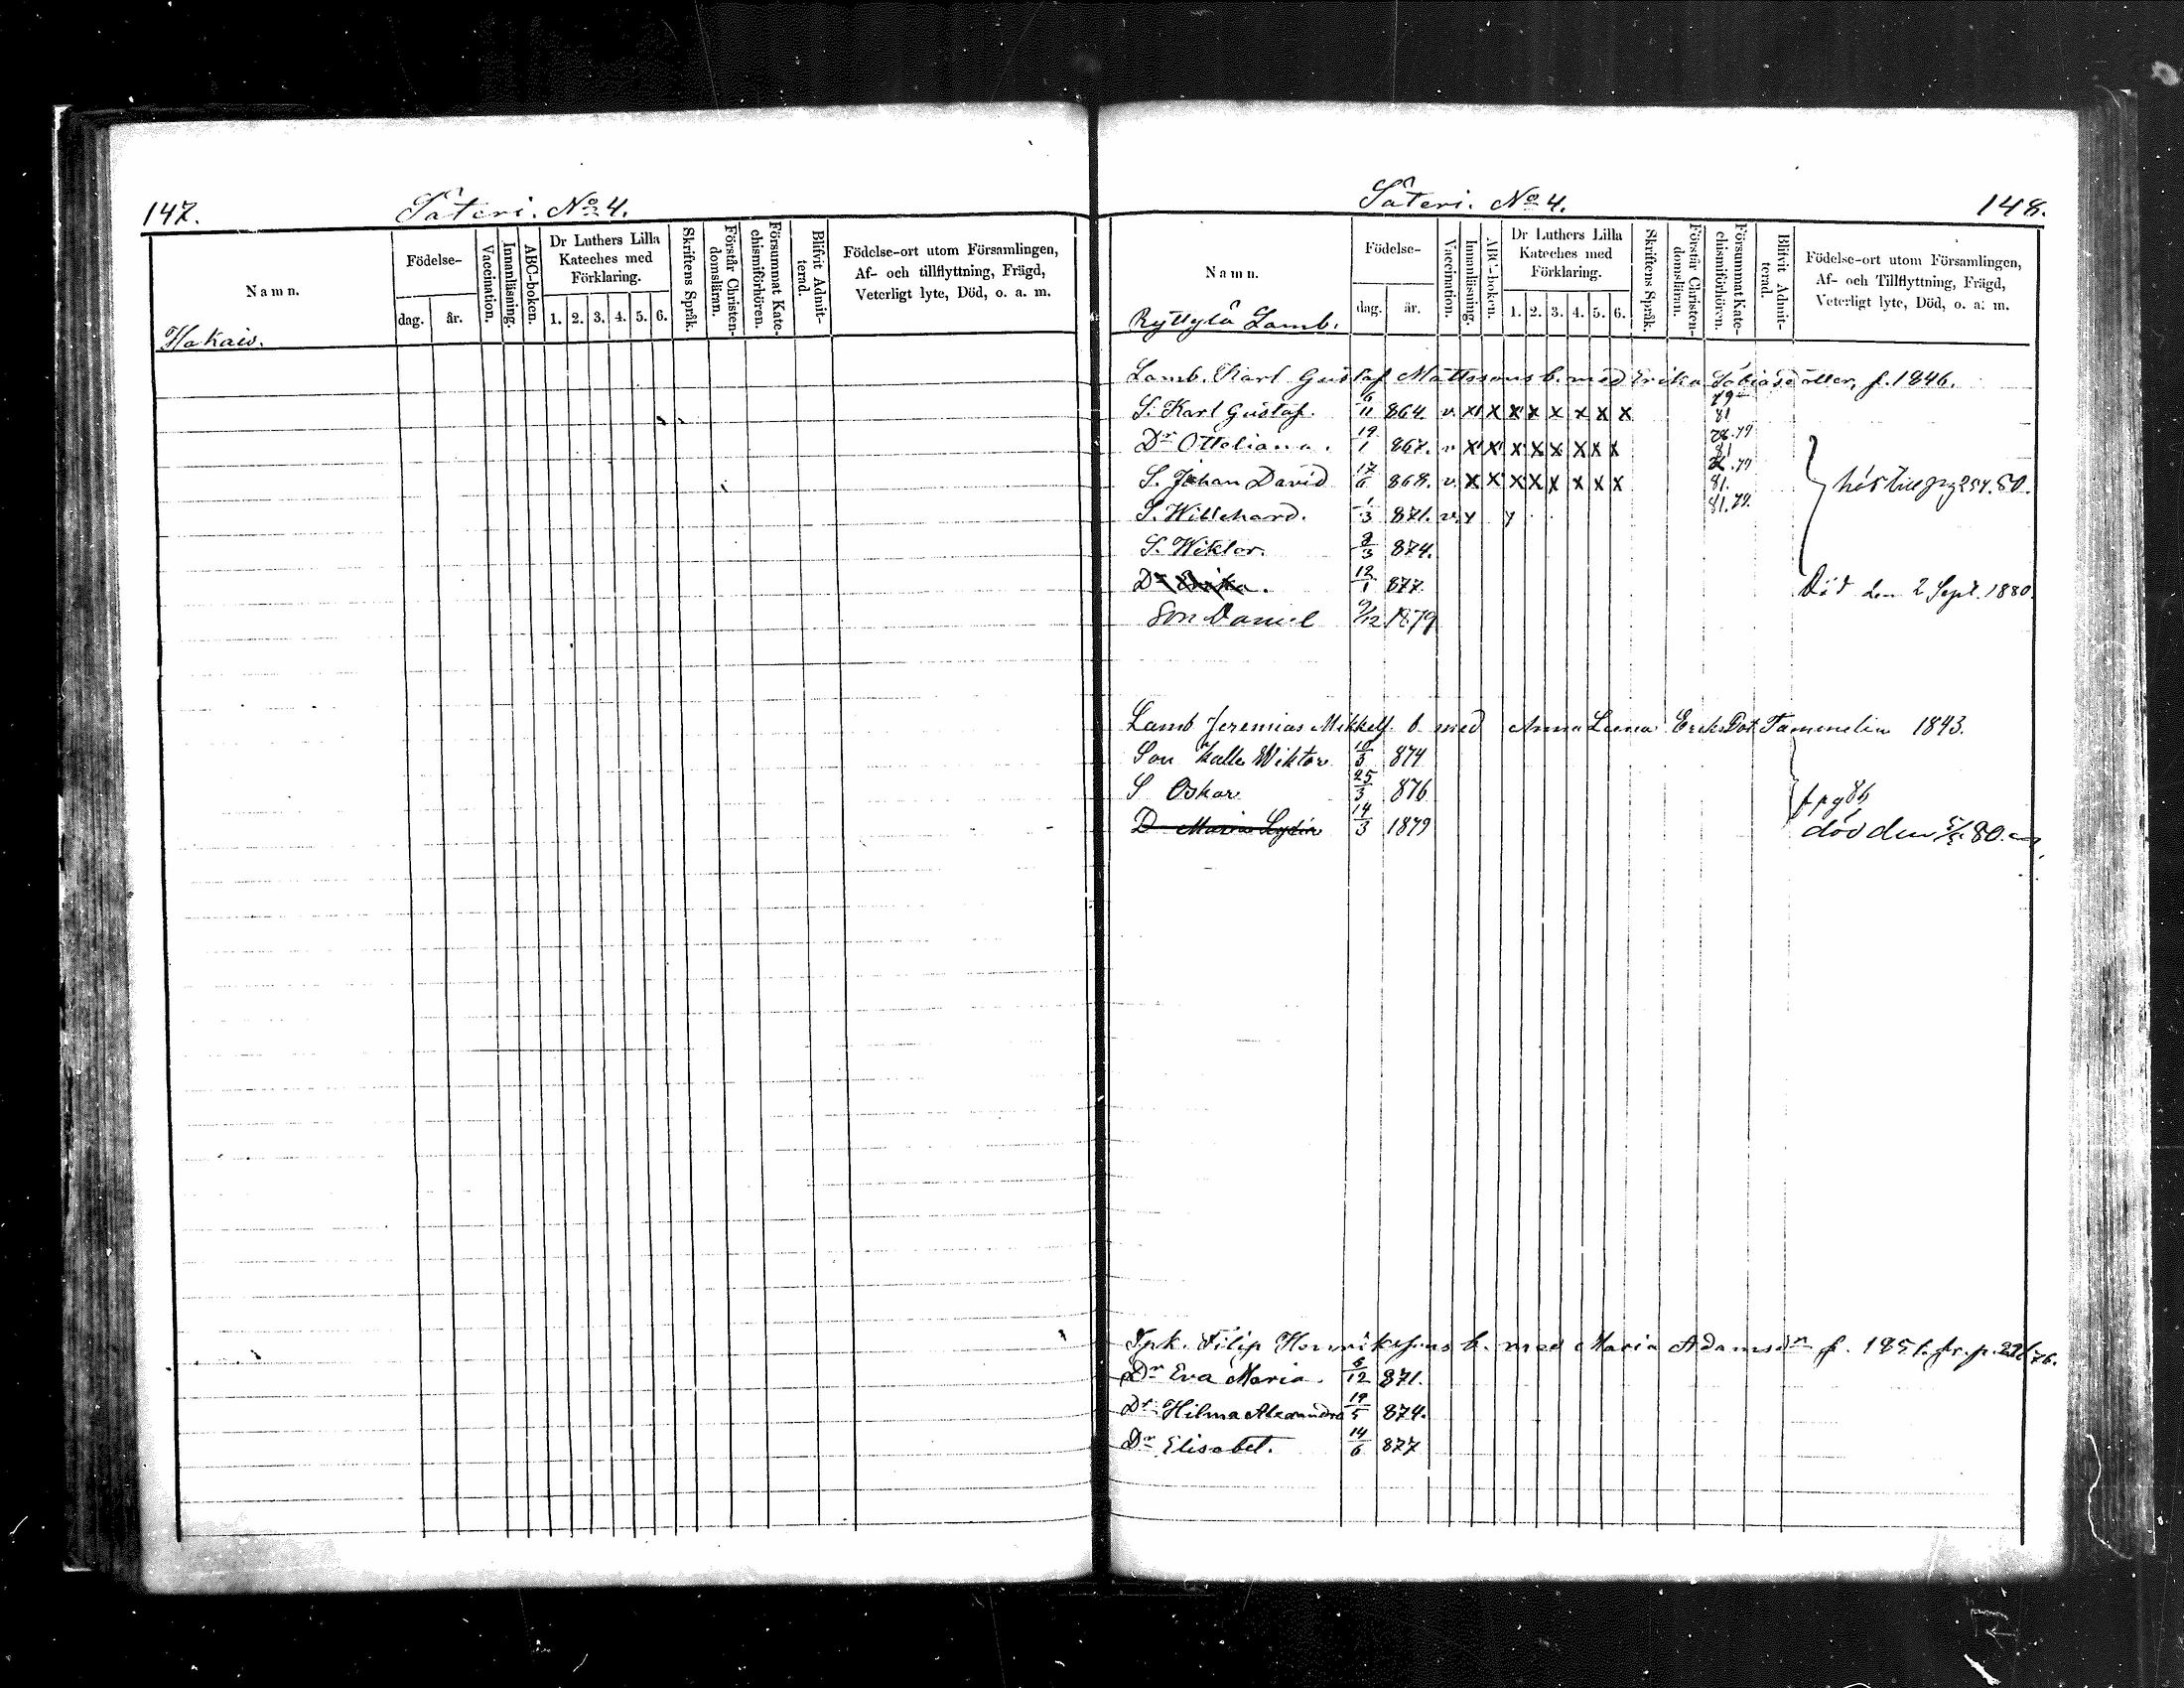 147.
Säteri. No 4.
Namn.
Födelse-
dag.
år.
Vaccination.
Innanläsning.
ABC-boken.
Dr Luthers Lilla Kateches med Förklaring.
1. 2. 3. 4. 5. 6.
Skriftens Språk.
Förstår Christendomsläran.
Försummat Katechismiförhören.
Blifvit Admitterad.
Födelse-ort utom Församlingen,
Af- och tillflyttning, Frägd,
Veterligt lyte, Död, o. a. m.
Säteri. No 4.
148.
Namn.
Födelse-
dag.
år.
Vaccination.
Innanläsning.
ABC-boken.
Dr Luthers Lilla Kateches med Förklaring.
1. 2. 3. 4. 5. 6.
Skriftens Språk.
Förstår Christendomsläran.
Försummat Katechismiförhören.
Blifvit Admitterad.
Födelse-ort utom Församlingen,
Af- och Tillflyttning, Frägd,
Veterligt lyte, Död, o. a. m.
Lamb.
Lamb. Karl Gustaf Mattssons b. med Erika f. 1846.
S. Karl Gustaf. 6/11 864. v. x x x x x x x x 79 81
Dr Otteliana. 19/1 867. v x x x x x x x x 78.79 81
S. Johan David 17/6 868. v. x x x x x x x x 79 81.
S. Willehard. 1/3 871. v. y y 81.79.
254.80.
S. Wiktor. 2/3 874.
Dr Erika. 12/1 877. Död den 2 Sept. 1880.
Son Daniel 9/12 1879
Lamb Jeremias Mikkelss. b med Anna Leena Tammelin 1843.
Son Kalle Wiktor 10/3 874
S Oskar 25/3 876
D Maria Lydia 14/3 1879 död den 80.
Filip b. med Maria f. 1851.
Dr Eva Maria. 6/12 871.
Dr Hilma Alexandra 19/5 874.
Dr Elisabet. 14/6 877